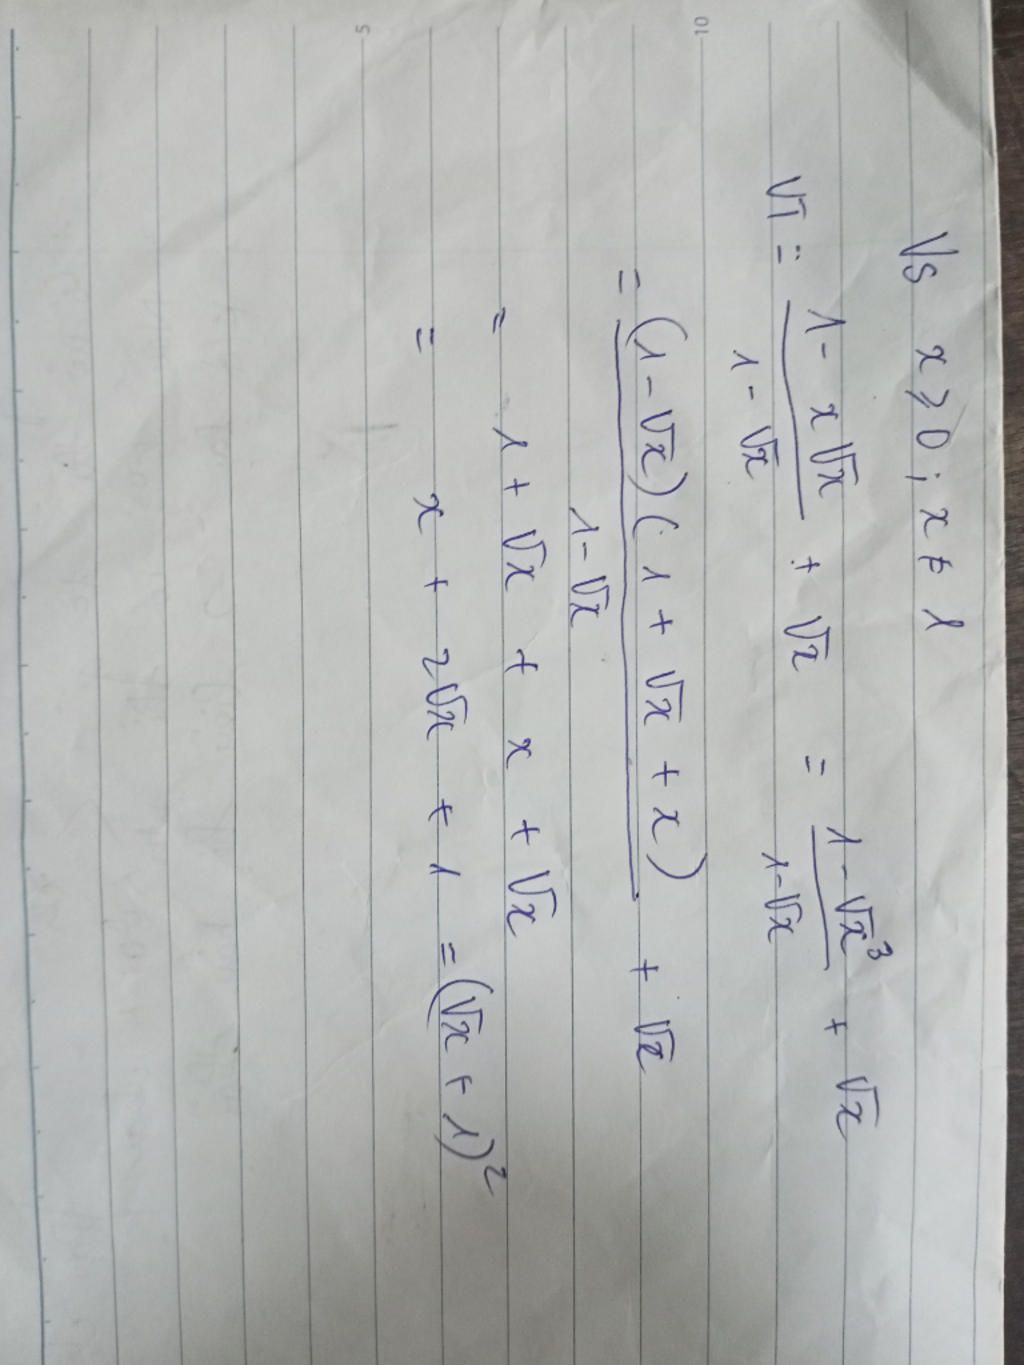 Vs x ⩾ 0 ; x ≠ 1
VT = (1 - x√x)/(1 - √x) + √x = (1 - √x³)/(1 - √x) + √x
= ((1 - √x)(1 + √x + x))/(1 - √x) + √x
= 1 + √x + x + √x
= x + 2√x + 1 = (√x + 1)²
10
5